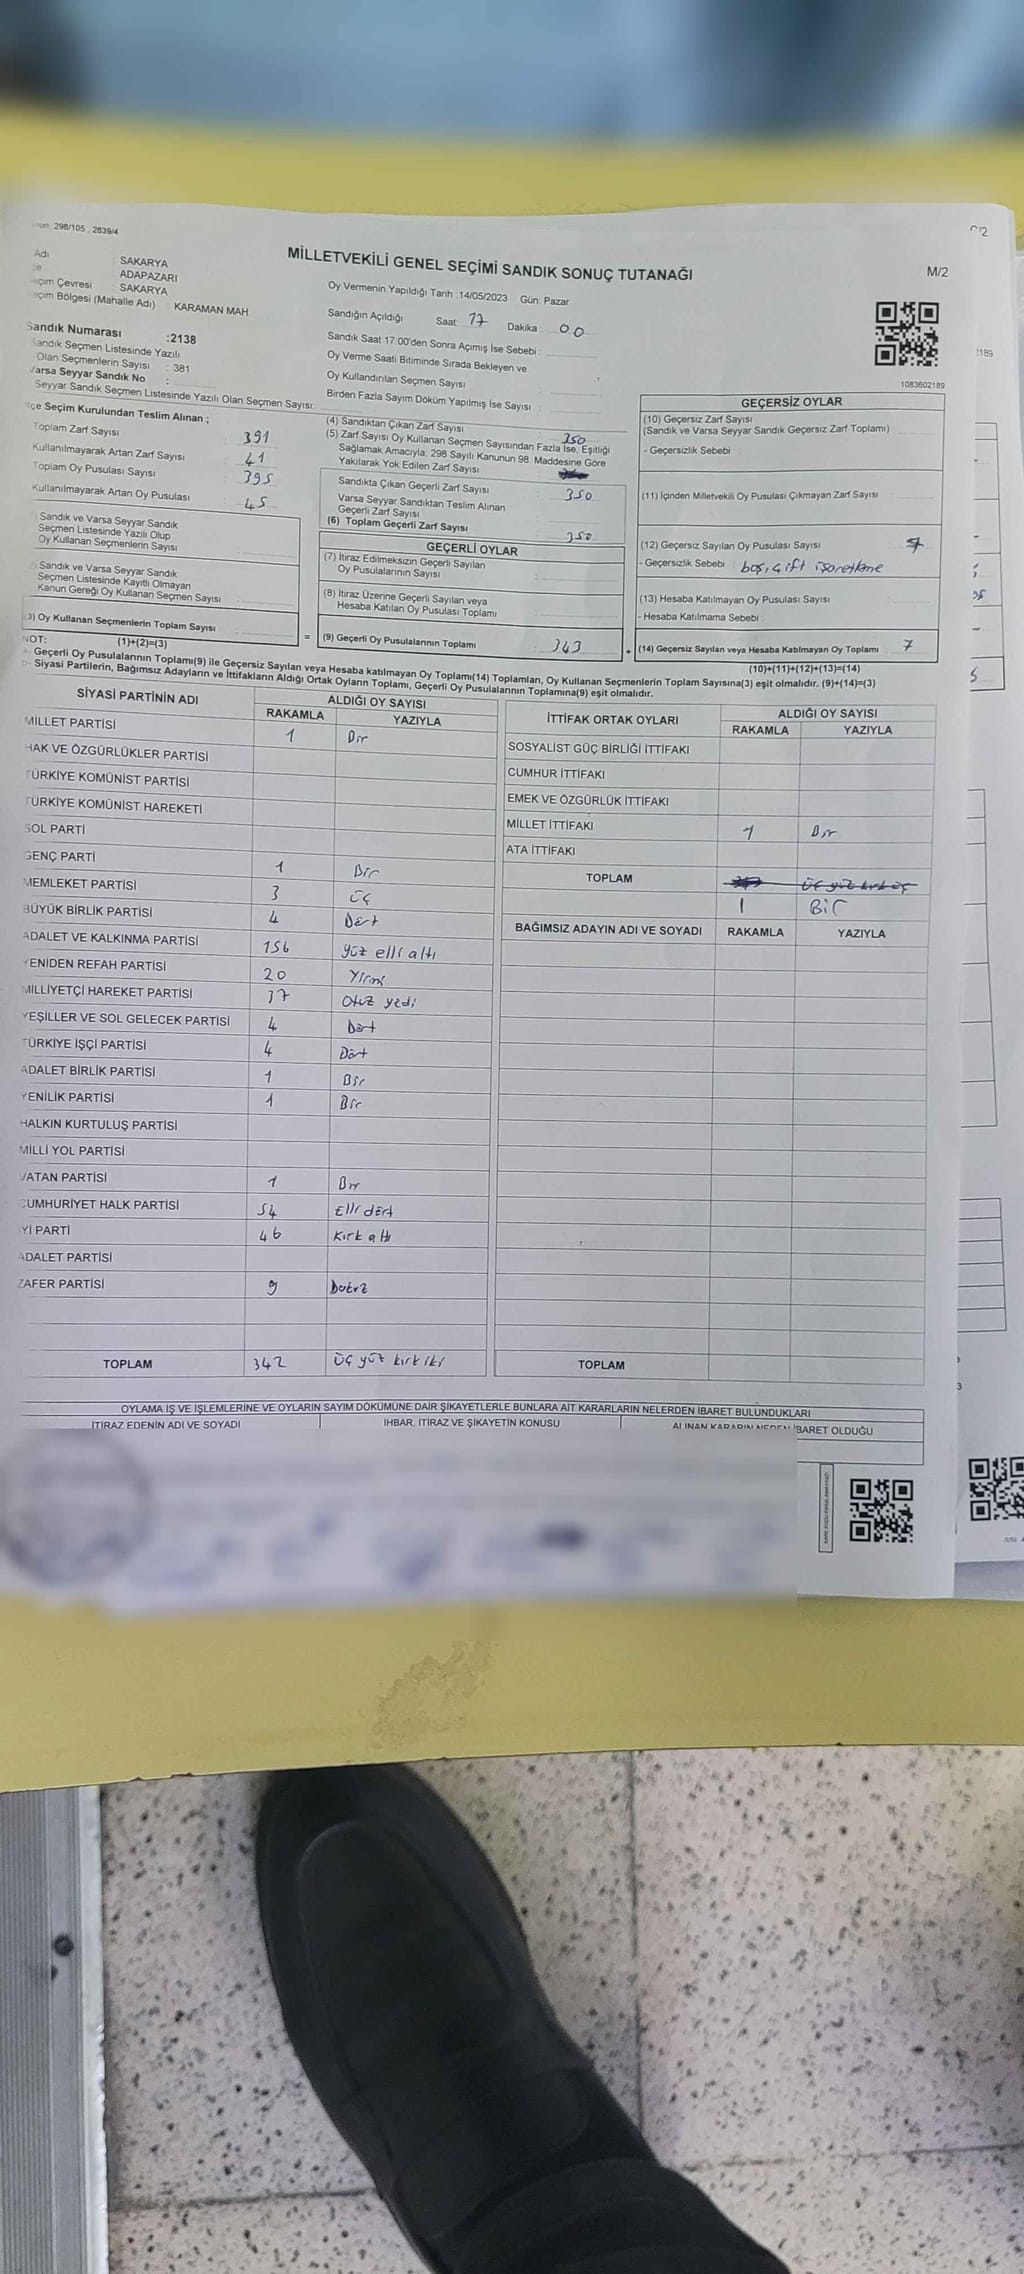 298/105 , 2839/4
MİLLETVEKİLİ GENEL SEÇİMİ SANDIK SONUÇ TUTANAĞI
M/2
Adı : SAKARYA
ADAPAZARI
Çevresi : SAKARYA
Bölgesi (Mahalle Adı) : KARAMAN MAH.
Oy Vermenin Yapıldığı Tarih :14/05/2023 Gün: Pazar
Sandığın Açıldığı Saat: 17 Dakika : 00
Sandık Saat 17:00'den Sonra Açımış İse Sebebi :
Oy Verme Saati Bitiminde Sırada Bekleyen ve
Oy Kullandırılan Seçmen Sayısı
Birden Fazla Sayım Döküm Yapılmış İse Sayısı
1083602189
Sandık Numarası :2138
Sandık Seçmen Listesinde Yazılı
Olan Seçmenlerin Sayısı : 381
Varsa Seyyar Sandık No :
Seyyar Sandık Seçmen Listesinde Yazılı Olan Seçmen Sayısı:
İlçe Seçim Kurulundan Teslim Alınan ;
Toplam Zarf Sayısı : 391
Kullanılmayarak Artan Zarf Sayısı : 41
Toplam Oy Pusulası Sayısı : 395
Kullanılmayarak Artan Oy Pusulası : 45
Sandık ve Varsa Seyyar Sandık
Seçmen Listesinde Yazılı Olup
Oy Kullanan Seçmenlerin Sayısı
Sandık ve Varsa Seyyar Sandık
Seçmen Listesinde Kayıtlı Olmayan
Kanun Gereği Oy Kullanan Seçmen Sayısı :
(3) Oy Kullanan Seçmenlerin Toplam Sayısı
(1)+(2)=(3)
(4) Sandıktan Çıkan Zarf Sayısı : 350
(5) Zarf Sayısı Oy Kullanan Seçmen Sayısından Fazla İse, Eşitliği
Sağlamak Amacıyla, 298 Sayılı Kanunun 98. Maddesine Göre
Yakılarak Yok Edilen Zarf Sayısı
Sandıkta Çıkan Geçerli Zarf Sayısı : 350
Varsa Seyyar Sandıktan Teslim Alınan
Geçerli Zarf Sayısı
(6) Toplam Geçerli Zarf Sayısı : 350
GEÇERLİ OYLAR
(7) İtiraz Edilmeksizin Geçerli Sayılan
Oy Pusulalarının Sayısı
(8) İtiraz Üzerine Geçerli Sayılan veya
Hesaba Katılan Oy Pusulası Toplamı
= (9) Geçerli Oy Pusulalarının Toplamı : 343
GEÇERSİZ OYLAR
(10) Geçersiz Zarf Sayısı
(Sandık ve Varsa Seyyar Sandık Geçersiz Zarf Toplamı)
- Geçersizlik Sebebi :
(11) İçinden Milletvekili Oy Pusulası Çıkmayan Zarf Sayısı
(12) Geçersiz Sayılan Oy Pusulası Sayısı : 7
- Geçersizlik Sebebi : boş, çift işaretleme
(13) Hesaba Katılmayan Oy Pusulası Sayısı
- Hesaba Katılmama Sebebi :
+ (14) Geçersiz Sayılan veya Hesaba Katılmayan Oy Toplamı : 7
(10)+(11)+(12)+(13)=(14)
NOT:
- Geçerli Oy Pusulalarının Toplamı(9) ile Geçersiz Sayılan veya Hesaba katılmayan Oy Toplamı(14) Toplamları, Oy Kullanan Seçmenlerin Toplam Sayısına(3) eşit olmalıdır. (9)+(14)=(3)
- Siyasi Partilerin, Bağımsız Adayların ve İttifakların Aldığı Ortak Oyların Toplamı, Geçerli Oy Pusulalarının Toplamına(9) eşit olmalıdır.
SİYASİ PARTİNİN ADI ALDIĞI OY SAYISI
RAKAMLA YAZIYLA
MİLLET PARTİSİ 1 Bir
HAK VE ÖZGÜRLÜKLER PARTİSİ
TÜRKİYE KOMÜNİST PARTİSİ
TÜRKİYE KOMÜNİST HAREKETİ
SOL PARTİ
GENÇ PARTİ 1 Bir
MEMLEKET PARTİSİ 3 Üç
BÜYÜK BİRLİK PARTİSİ 4 Dört
ADALET VE KALKINMA PARTİSİ 156 yüz elli altı
YENİDEN REFAH PARTİSİ 20 Yirmi
MİLLİYETÇİ HAREKET PARTİSİ 37 Otuz yedi
YEŞİLLER VE SOL GELECEK PARTİSİ 4 Dört
TÜRKİYE İŞÇİ PARTİSİ 4 Dört
ADALET BİRLİK PARTİSİ 1 Bir
YENİLİK PARTİSİ 1 Bir
HALKIN KURTULUŞ PARTİSİ
MİLLİ YOL PARTİSİ
VATAN PARTİSİ 1 Bir
CUMHURİYET HALK PARTİSİ 54 Elli dört
İYİ PARTİ 46 Kırk altı
ADALET PARTİSİ
ZAFER PARTİSİ 9 Dokuz
TOPLAM 342 Üç yüz kırk iki
İTTİFAK ORTAK OYLARI ALDIĞI OY SAYISI
RAKAMLA YAZIYLA
SOSYALİST GÜÇ BİRLİĞİ İTTİFAKI
CUMHUR İTTİFAKI
EMEK VE ÖZGÜRLÜK İTTİFAKI
MİLLET İTTİFAKI 1 Bir
ATA İTTİFAKI
TOPLAM üç yüz kırk üç
1 Bir
BAĞIMSIZ ADAYIN ADI VE SOYADI RAKAMLA YAZIYLA
TOPLAM
OYLAMA İŞ VE İŞLEMLERİNE VE OYLARIN SAYIM DÖKÜMÜNE DAİR ŞİKAYETLERLE BUNLARA AİT KARARLARIN NELERDEN İBARET BULUNDUKLARI
İTİRAZ EDENİN ADI VE SOYADI İHBAR, İTİRAZ VE ŞİKAYETİN KONUSU ALINAN KARARIN NEDEN İBARET OLDUĞU